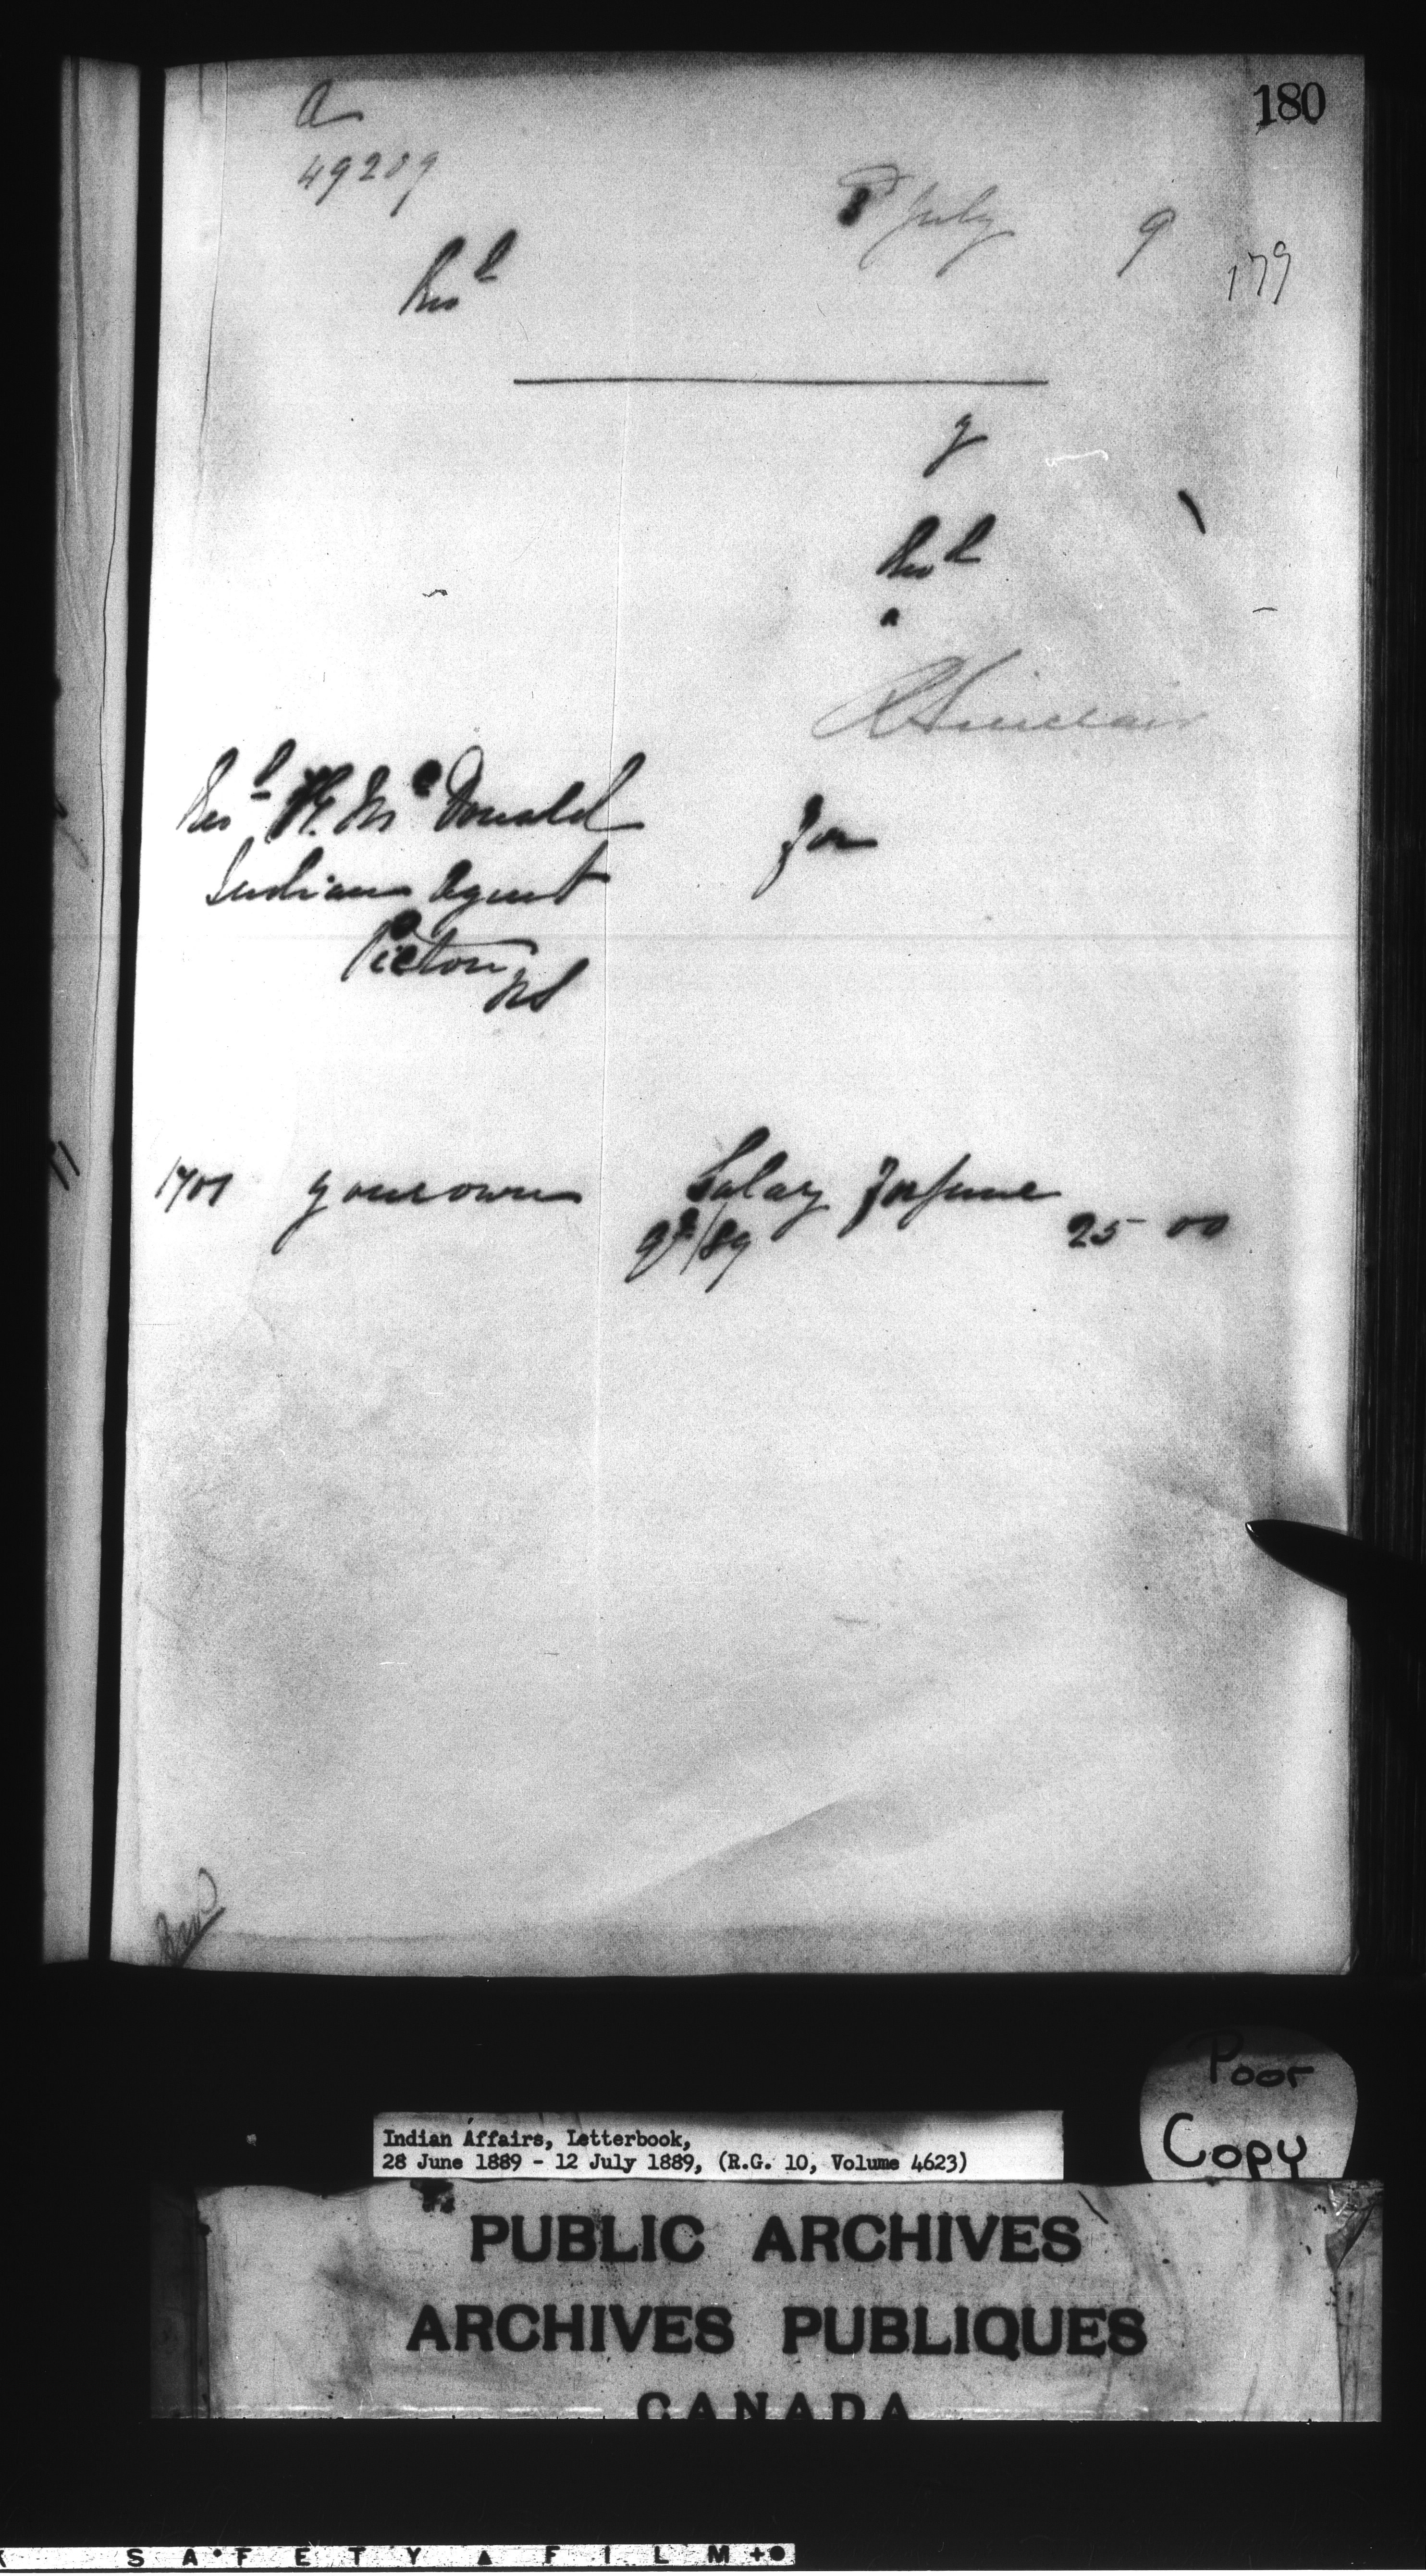 180
a
49209
8 July 9
179
Revd
y
Revd
R Sinclair
Revd R. McDonald
for
Indian Agent
Pictou
NS
1701 your own Salary for June
Qr/89 25 00
Poor
Copy
Indian Affairs, Letterbook,
28 June 1889 - 12 July 1889, (R.G. 10, Volume 4623)
PUBLIC ARCHIVES
ARCHIVES PUBLIQUES
CANADA
SAFETY FILM